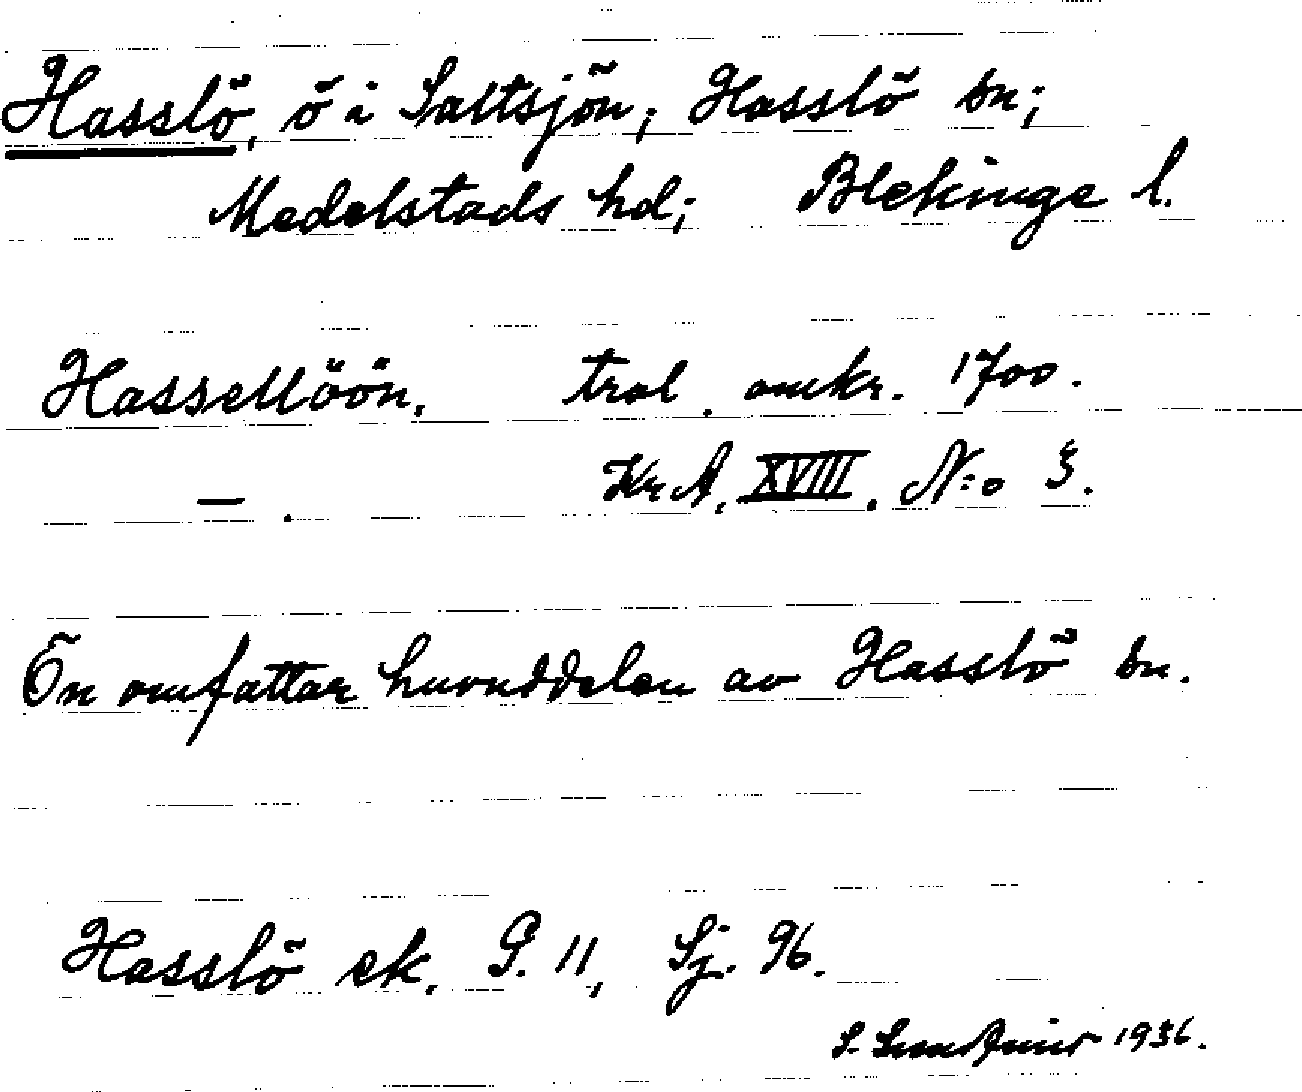 Hasslö, ö i Saltsjön; Hasslö sn;
Medelstads hd; Blekinge l.
Hasselöön. trol. omkr. 1700.
— . Kr A. XVIII. N:o 3.
Ön omfattar huvuddelen av Hasslö sn.
Hasslö ek. G. 11, Sj. 96.
S. 1936.